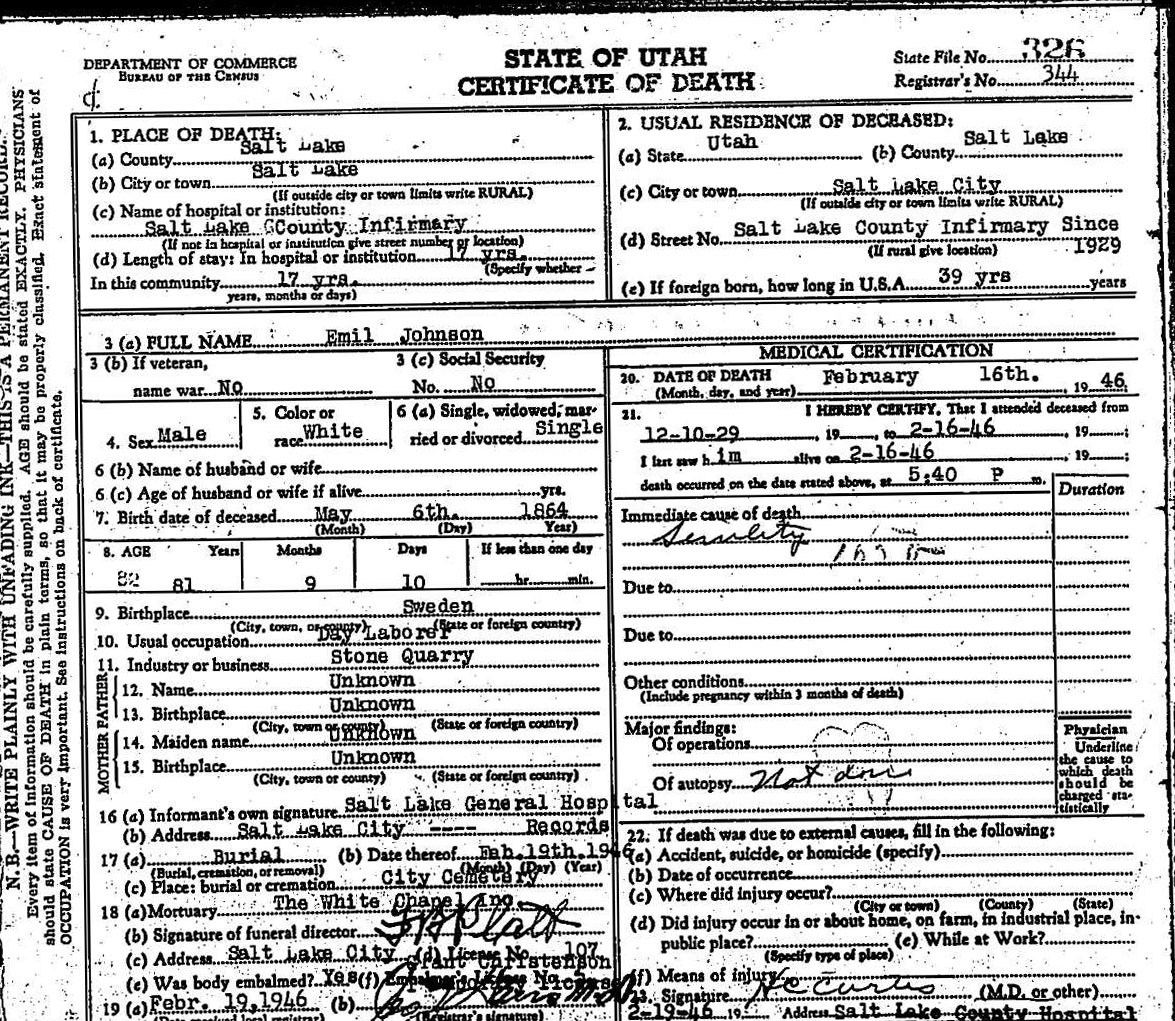 DEPARTMENT OF COMMERCE
BUREAU OF THE CENSUS
STATE OF UTAH
CERTIFICATE OF DEATH
State File No. 326
Registrar's No. 344
N. B.—WRITE PLAINLY WITH UNFADING INK—THIS IS A PERMANENT RECORD.
Every item of information should be carefully supplied. AGE should be stated EXACTLY. PHYSICIANS
should state CAUSE OF DEATH in plain terms, so that it may be properly classified. Exact statement of
OCCUPATION is very important. See instructions on back of certificate.
1. PLACE OF DEATH:
(a) County Salt Lake
(b) City or town Salt Lake
(If outside city or town limits write RURAL)
(c) Name of hospital or institution:
Salt Lake GCounty Infirmary
(If not in hospital or institution give street number or location)
(d) Length of stay: In hospital or institution 17 yrs.
(Specify whether
In this community 17 yrs.
years, months or days)
2. USUAL RESIDENCE OF DECEASED:
(a) State Utah (b) County Salt Lake
(c) City or town Salt Lake City
(If outside city or town limits write RURAL)
(d) Street No. Salt Lake County Infirmary Since
(If rural give location) 1929
(e) If foreign born, how long in U.S.A. 39 yrs years
3 (a) FULL NAME Emil Johnson
3 (b) If veteran,
name war No
3 (c) Social Security
No. No
4. Sex Male
5. Color or
race White
6 (a) Single, widowed, mar-
ried or divorced Single
6 (b) Name of husband or wife
6 (c) Age of husband or wife if alive yrs.
7. Birth date of deceased May 6th. 1864
(Month) (Day) Year)
8. AGE Years Months Days If less than one day
82 81 9 10 hr. min.
9. Birthplace Sweden
(City, town, or county) (State or foreign country)
10. Usual occupation Day Laborer
11. Industry or business Stone Quarry
FATHER
12. Name Unknown
13. Birthplace Unknown
(City, town or county) (State or foreign country)
MOTHER
14. Maiden name Unknown
15. Birthplace Unknown
(City, town or county) (State or foreign country)
16 (a) Informant's own signature Salt Lake General Hospital
(b) Address Salt Lake City ---- Records
17 (a) Burial (b) Date thereof Feb.19th.1946
(Burial, cremation, or removal) (Month) (Day) (Year)
(c) Place: burial or cremation City Cemetery
18 (a) Mortuary The White Chapel Inc
(b) Signature of funeral director
(c) Address Salt Lake City (d) License No. 107
Grant Christenson
(e) Was body embalmed? Yes (f) Embalmer's License No.
19 (a) Febr. 19,1946 (b)
(Date received local registrar) (Registrar's signature)
MEDICAL CERTIFICATION
20. DATE OF DEATH February 16th. 19 46
(Month, day, and year)
21. I HEREBY CERTIFY, That I attended deceased from
12-10-29 , 19 , to 2-16-46 , 19 ;
I last saw him alive on 2-16-46 , 19 ;
death occurred on the date stated above, at 5:40 P m.
Duration
Immediate cause of death
Senility
Due to
Due to
Other conditions
(Include pregnancy within 3 months of death)
Major findings:
Of operations
Of autopsy Not done
Physician
Underline
the cause to
which death
should be
charged sta-
tistically
22. If death was due to external causes, fill in the following:
(a) Accident, suicide, or homicide (specify)
(b) Date of occurrence
(c) Where did injury occur?
(City or town) (County) (State)
(d) Did injury occur in or about home, on farm, in industrial place, in
public place? (e) While at Work?
(Specify type of place)
(f) Means of injury
23. Signature H C Curtis (M.D. or other)
2-19-46 19 Address Salt Lake County Hospital